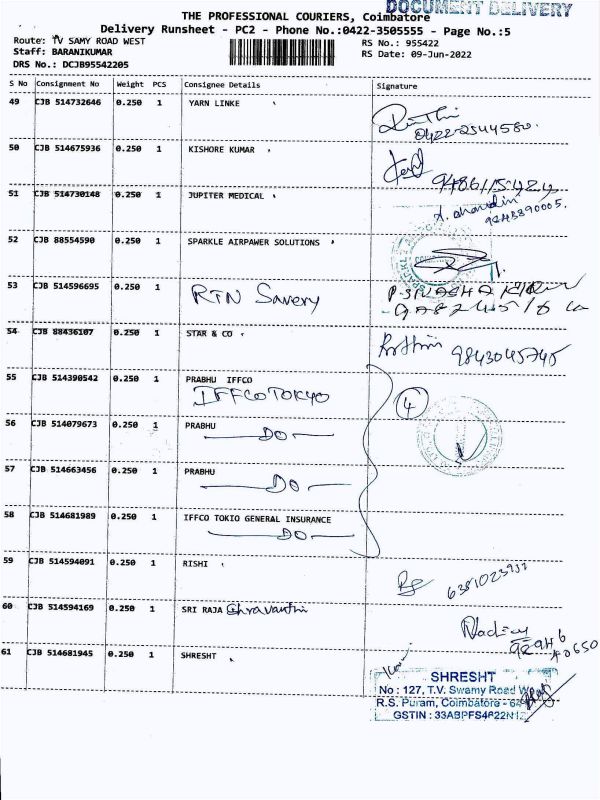 DOCUMENT DELIVERY
THE PROFESSIONAL COURIERS, Coimbatore
Delivery Runsheet - PC2 - Phone No.:0422-3505555 - Page No.:5
Route: TV SAMY ROAD WEST RS No.: 955422
Staff: BARANIKUMAR RS Date: 09-Jun-2022
DRS No.: DCJB95542205
S No Consignment No Weight PCS Consignee Details Signature
49 CJB 514732646 0.250 1 YARN LINKE
0422-2544580.
50 CJB 514675936 0.250 1 KISHORE KUMAR
51 CJB 514730148 0.250 1 JUPITER MEDICAL
52 CJB 88554590 0.250 1 SPARKLE AIRPAWER SOLUTIONS
53 CJB 514596695 0.250 1 RTN Savery
54 CJB 88436107 0.250 1 STAR & CO
9843045745
55 CJB 514390542 0.250 1 PRABHU IFFCO
IFFCO TOKYO
4
56 CJB 514079673 0.250 1 PRABHU
DO
57 CJB 514663456 0.250 1 PRABHU
DO
58 CJB 514681989 0.250 1 IFFCO TOKIO GENERAL INSURANCE
DO
59 CJB 514594091 0.250 1 RISHI
60 CJB 514594169 0.250 1 SRI RAJA Shravanthi
61 CJB 514681945 0.250 1 SHRESHT
SHRESHT
No : 127, T.V. Swamy Road
R.S. Puram, Coimbatore -
GSTIN : 33ABPFS4622N1Z